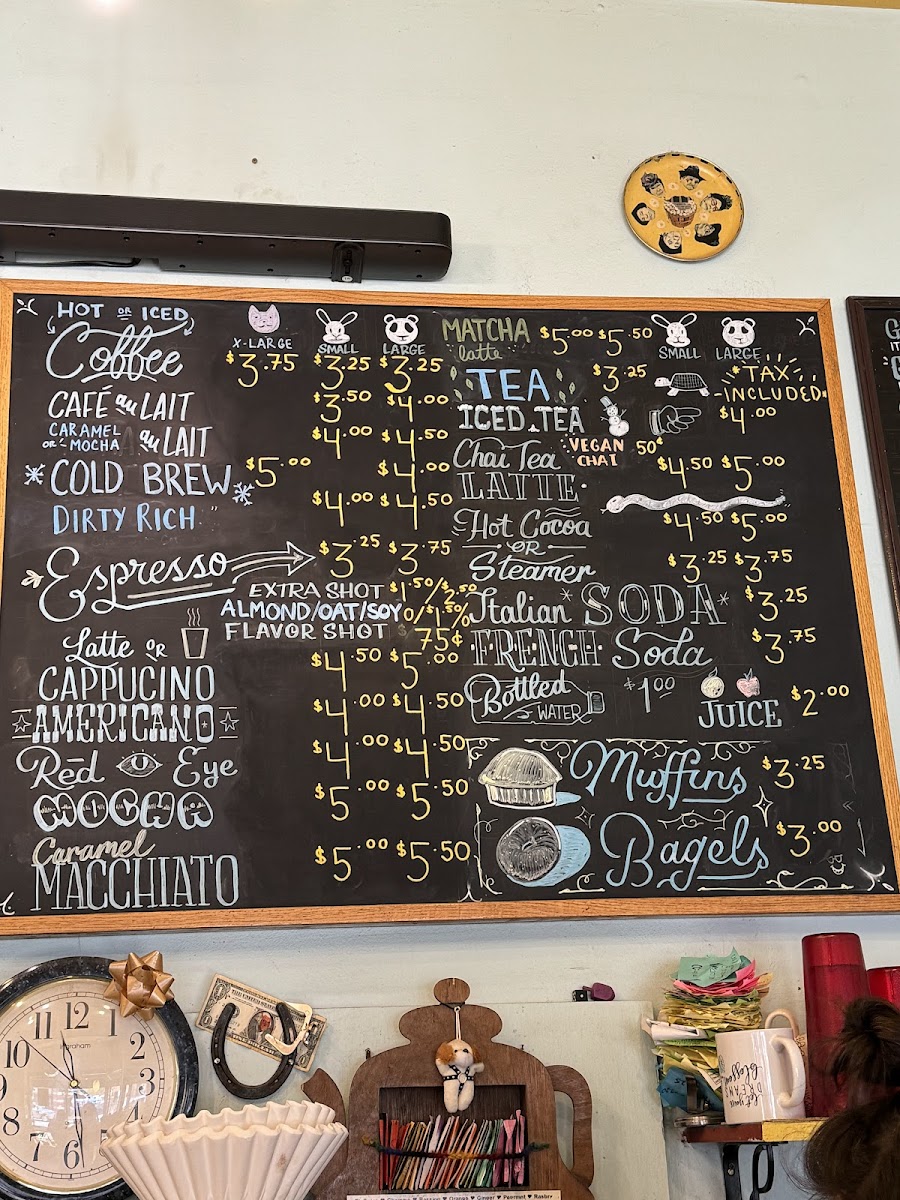 HOT OR ICED
Coffee
X-LARGE SMALL LARGE
$3.75 $3.25 $3.25
CAFÉ au LAIT $3.50 $4.00
CARAMEL OR MOCHA au LAIT $4.00 $4.50
COLD BREW $5.00 $4.00
DIRTY RICH $4.00 $4.50
Espresso $3.25 $3.75
EXTRA SHOT $1.50/$2.50
ALMOND/OAT/SOY
FLAVOR SHOT 75¢
Latte OR CAPPUCINO $4.50 $5.00
AMERICANO $4.00 $4.50
Red Eye $4.00 $4.50
MOCHA $5.00 $5.50
Caramel MACCHIATO $5.00 $5.50
MATCHA latte $5.00 $5.50
SMALL LARGE
TEA $3.25
*TAX INCLUDED*
ICED TEA $4.00
Chai Tea LATTE $4.50 $5.00
VEGAN CHAI 50¢
Hot Cocoa $4.50 $5.00
OR
Steamer $3.25 $3.75
Italian SODA $3.25
FRENCH Soda $3.75
Bottled WATER $1.00
JUICE $2.00
Muffins $3.25
Bagels $3.00
12 1 2 3 6 7 8 10 11